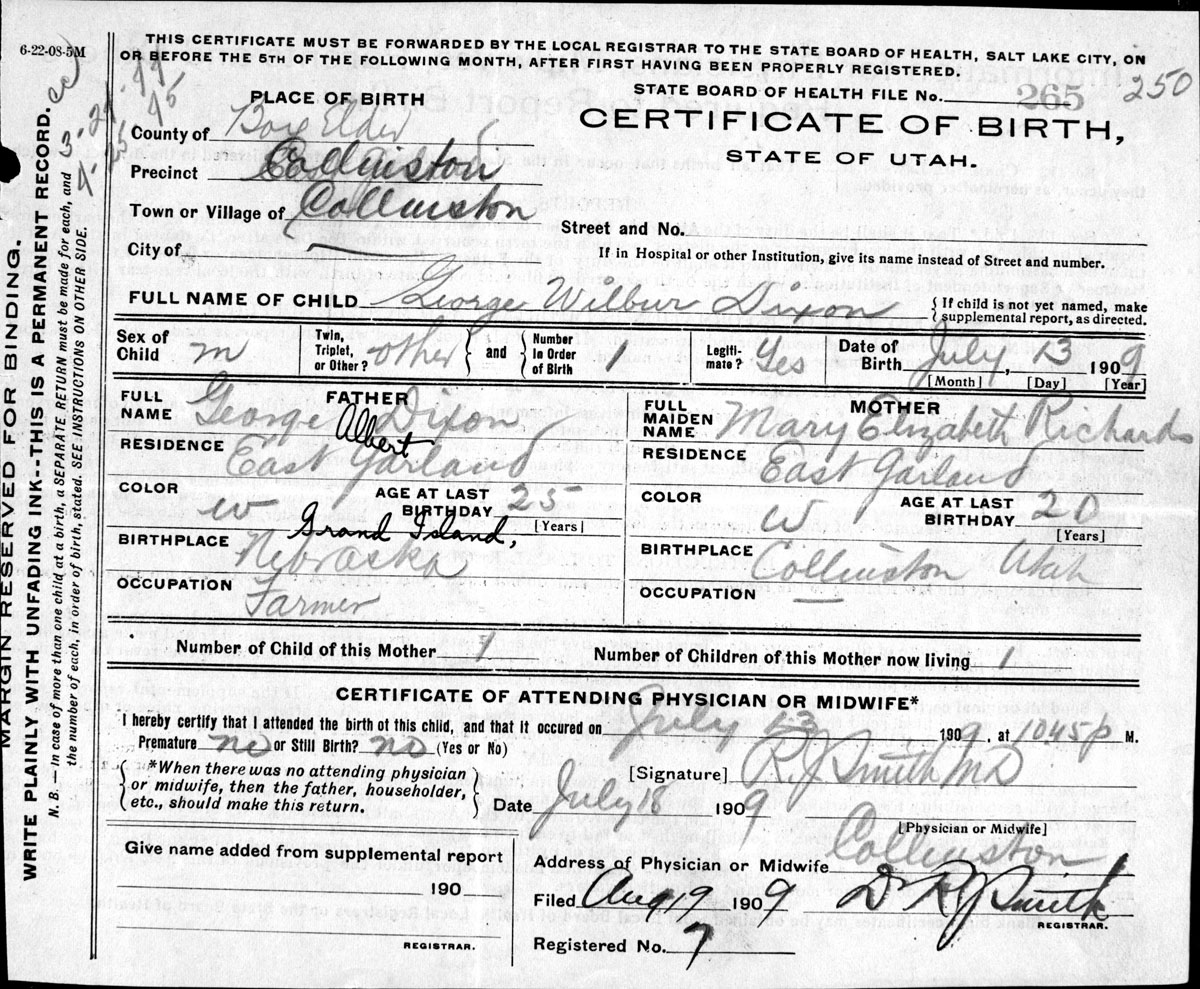 6-22-08-5M
THIS CERTIFICATE MUST BE FORWARDED BY THE LOCAL REGISTRAR TO THE STATE BOARD OF HEALTH, SALT LAKE CITY, ON
OR BEFORE THE 5TH OF THE FOLLOWING MONTH, AFTER FIRST HAVING BEEN PROPERLY REGISTERED.
STATE BOARD OF HEALTH FILE No. 265 250
PLACE OF BIRTH
CERTIFICATE OF BIRTH,
STATE OF UTAH.
County of Box Elder
Precinct Collinston
Town or Village of Collinston
Street and No.
City of
If in Hospital or other Institution, give its name instead of Street and number.
FULL NAME OF CHILD George Wilbur Dixon { If child is not yet named, make supplemental report, as directed.
Sex of Child m Twin, Triplet, or Other? other } and { Number In Order of Birth 1 Legiti-mate? Yes Date of Birth July, 13 1909
[Month] [Day] [Year]
FATHER
FULL NAME George Albert Dixon
RESIDENCE East Garland
COLOR w AGE AT LAST BIRTHDAY 25 [Years]
BIRTHPLACE Grand Island, Nebraska
OCCUPATION Farmer
MOTHER
FULL MAIDEN NAME Mary Elizabeth Richards
RESIDENCE East Garland
COLOR W AGE AT LAST BIRTHDAY 20 [Years]
BIRTHPLACE Collinston Utah
OCCUPATION —
Number of Child of this Mother 1 Number of Children of this Mother now living 1
CERTIFICATE OF ATTENDING PHYSICIAN OR MIDWIFE*
I hereby certify that I attended the birth of this chlid, and that it occured on July 13 1909, at 1045 p M.
Premature no or Still Birth? no (Yes or No)
{ *When there was no attending physician
or midwife, then the father, householder,
etc., should make this return. }
[Signature] R. J. Smith MD
Date July 18 1909
[Physician or Midwife]
Give name added from supplemental report
190
REGISTRAR.
Address of Physician or Midwife Collinston
Filed Aug 19 1909 Dr R J Smith
REGISTRAR.
Registered No. 7
MARGIN RESERVED FOR BINDING.
WRITE PLAINLY WITH UNFADING INK--THIS IS A PERMANENT RECORD.
N. B.— In case of more than one child at a birth, a SEPARATE RETURN must be made for each, and
the number of each, in order of birth, stated. SEE INSTRUCTIONS ON OTHER SIDE.